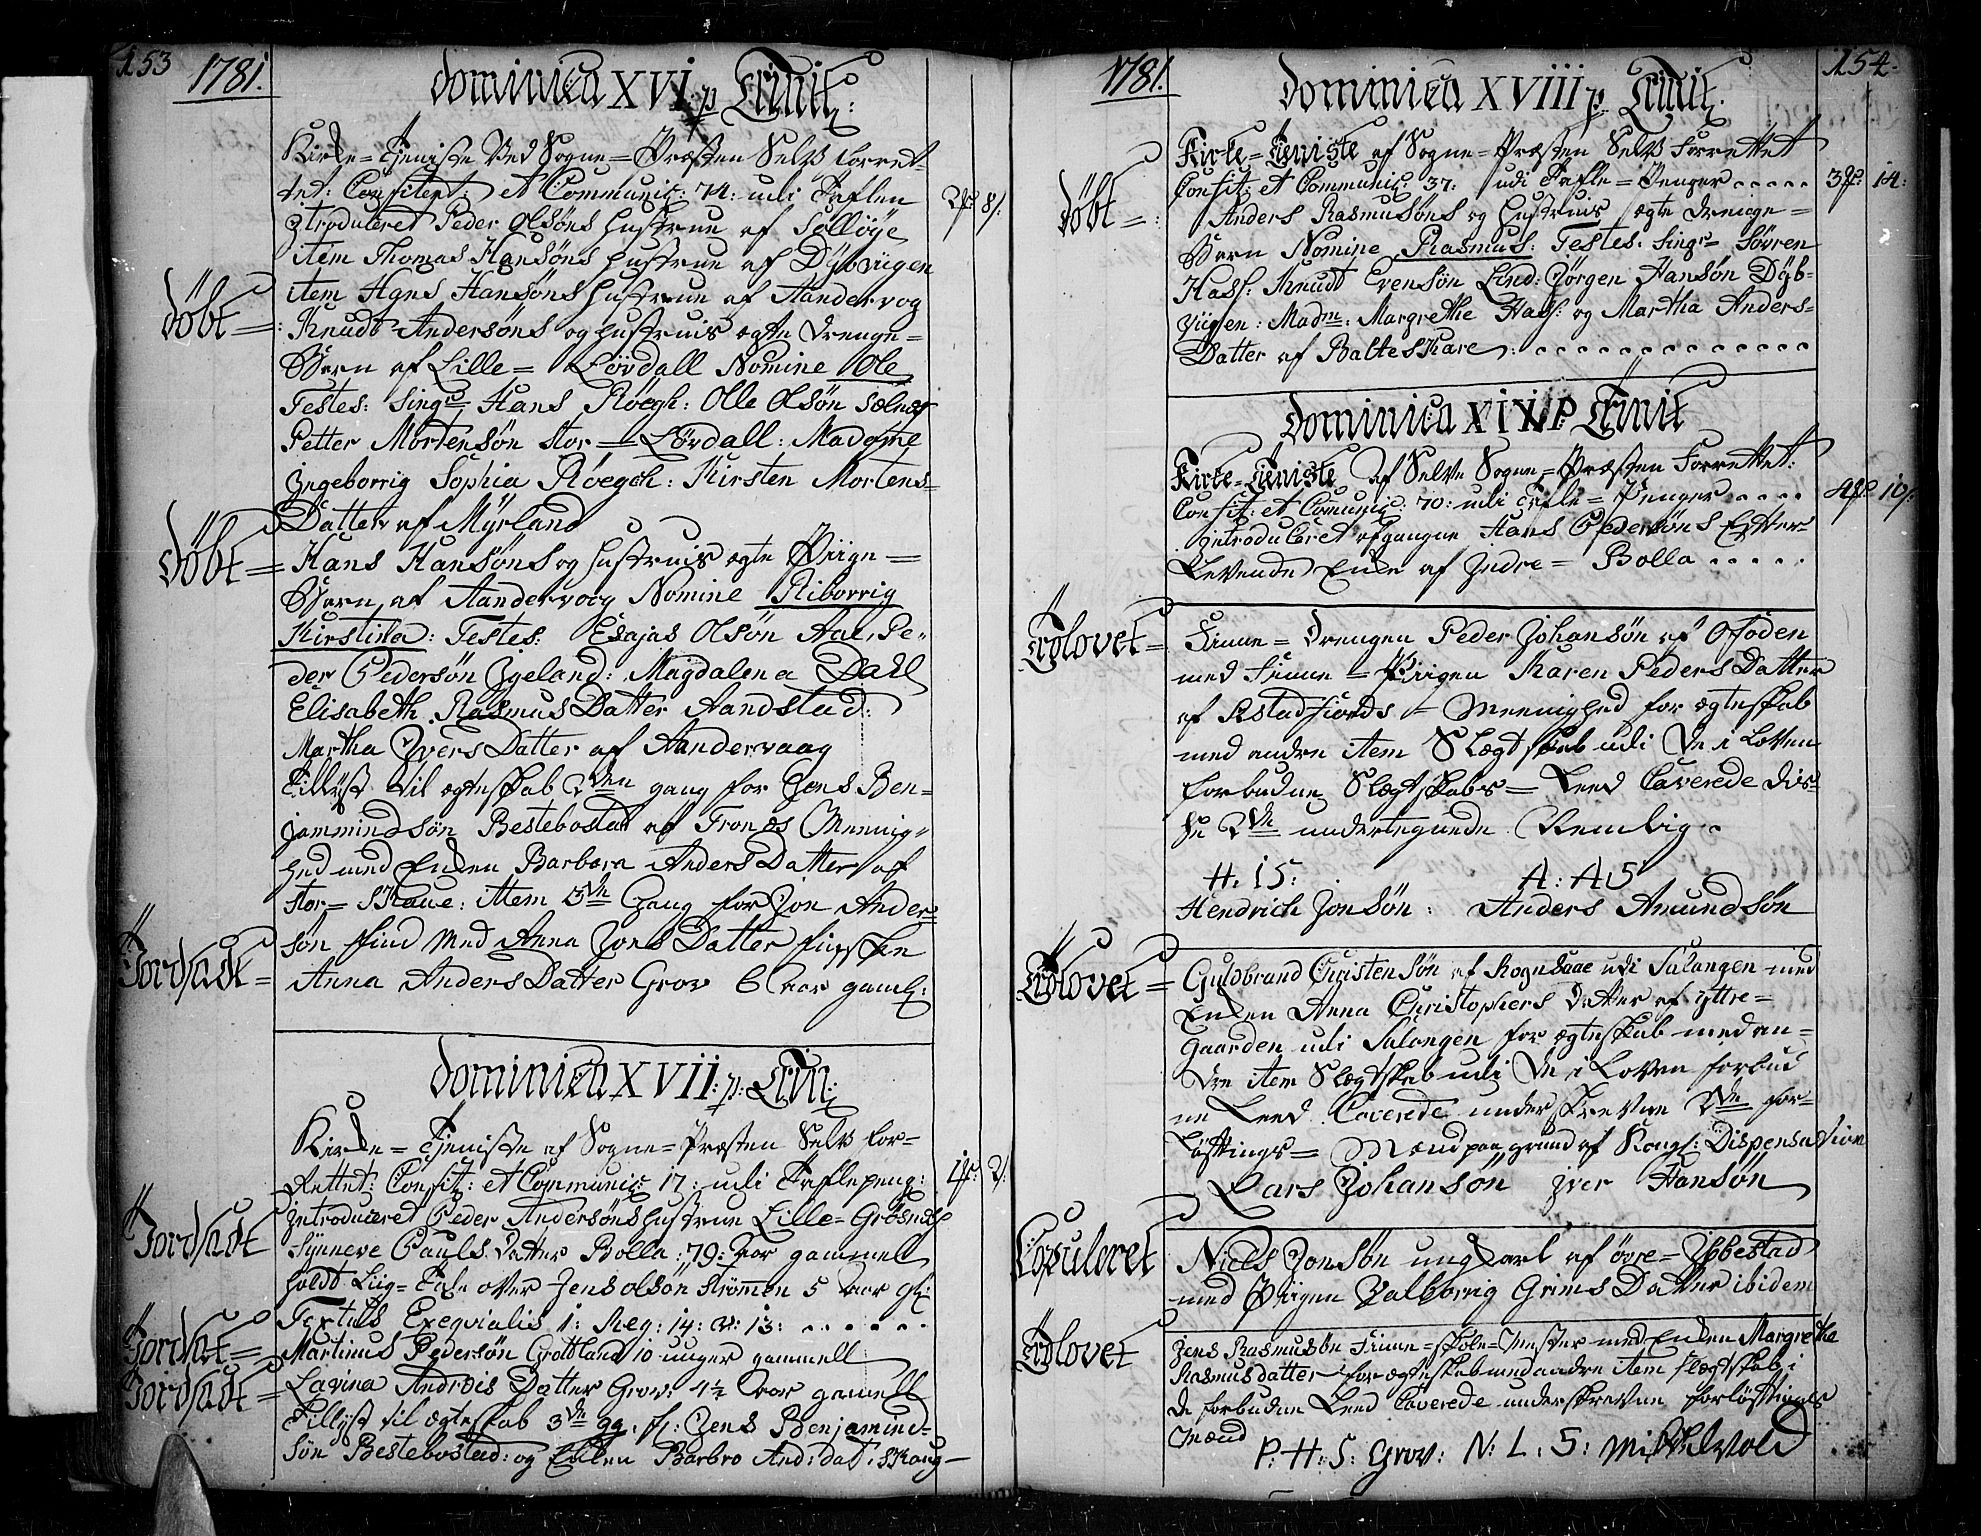 153 1781.
Dominica XVI p Trinit:
Kirke=Tieniste Ved Sogne=Præsten Selv forret-
tet: Confitent: et Communic: 74: udi Taflen 2 8/.
Introduceret Peder Olsøns Hustrue af Sølløye
item Thomas Hansøns Hustrue af Dybviigen
item Hans Hansøns Hustrue af Aandervog
Døbt= Knudt Andersøns og Hustruis ægte Drenge=
Barn af Lille= Løvdall Nomine Ole
Testes: Singr Hans Røegh: Olle Olsøn
Petter Mortensøn Stor=Løvdall: Madame
Ingeborrig Sophia Røegh: Kirsten Mortens=
Datter af Myrland
Døbt= Hans Hansøns og Hustruis ægte Piige=
Barn af Aandervog Nomine Riborrig
Kirstina: Testes: Esajas Olsøn Pe=
der Pedersøn Igeland: Magdalena Dahl
Elisabeth RasmusDatter Aandstad:
Martha IversDatter af Aandervaag
Tillyst til ægteskab 2den gang for Jens Ben=
jammindsøn Bestebostad af Tronæs Mennig=
hed med Enken Barbara AndersDatter af
Stor= item 3de Gang for Jon Ander=
søn find med Anna JonsDatter
Jordsadt= Anna AndersDatter Grov 6 Aar gaml:
Dominica XVII: p: Trin:
Kirke=Tieniste af Sogne=Præsten Selv for=
Rettet: Confit: et Communic: 17: udi Taflepeng: 1 2/
Introduceret Peder Andersøns Hustrue Lille=
Jordsadt Synneve PaulsDatter Bolla: 79: Aar gammel
holdt Liig=Tale over Jens Olsøn Strømmen 5 Aar gl:
Textus Exeqvialis 1: Reg: 14: v: 13: . . . . . .
Jordsat= Martinus Pedersøn Grottland 10 uger gammell
Jordsadt= Lavina Andreis Datter Grov: 4½ Aar gamell
Tillyst til ægteskab 3de gg. f: Jens Benjamind=
søn Bestebostad: og Enken Barbro And:dat:
1781. 154.
Dominica XVIII p. Trinit:
Kirke=Tieniste af Sogne=Præsten Selv Forrettet
Confit: et Communic: 37: udi Tafle=Penger . . . . . 3 14:
Døbt=: Anders Rasmusøns og Hustruis ægte Drenge=
Barn Nomine Rasmus: Testes: Singr Søvren
Hass: Knudt Evensøn Lind: Jørgen Hansøn Dyb=
viigen: Madm: Margrethe Hass: og Martha Anders=
Datter af Balteskare: . . . . . . . . . . . . .
Dominica XIX P. Trinit
Kirke=Tieniste af Selve Sogne=Præsten Forrettet:
Confit: et Comunic: 70: udi Tafle=Penger . . . . 4 10/.
Introduceret afgangne Hans Pedersøns Efter
Levende Enke af Indre= Bolla . . . . .
Trolovet= Finne=Drengen Peder Johansøn af Ofoden
med Finne=Piigen Karen PedersDatter
af Astadfiords=Meenighed for ægteskab
med andre item Slægtskab udi De i Loven
forbudne Slægtskabs=Leed Caverede Dis=
se 2de undertegnede Nemlig.
H. I S: A: A S
Hendrich Jonsøn: Anders Amundsøn
Trolovet= Guldbrand Christensøn af Rognsaae udi Salangen med
Enken Anna Christophers Datter af yttre=
Gaarden udi Salangen for ægteskab med an=
dre item Slægtskab udi De i Loven forbud
ne Leed. Caverede underskrevne 2de for=
løftnings=Mænd paa grund af Kongl: Dispensation
Lars Johansøn Iver Hansøn
Copuleret Niels Jonsøn ungkarl af Øvre=Ibbestad
med Piigen Valborrig Grims Datter ibidem
Trolovet Jens Rasmusøn Finne=Skole=Mester med Enken Margrethe
Rasmusdatter for ægteskab med andre item Slægtskab i
De forbudne Leed Caverede underskrevne forløftnings
Mænd P: H: S: Grov: N: L: S: